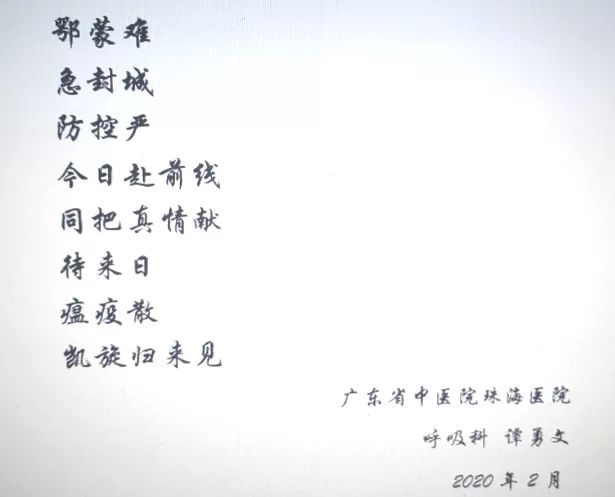 鄂蒙难
急封城
防控严
今日赴前线
同把真情献
待来日
瘟疫散
凯旋归来见
广东省中医院珠海医院
呼吸科 谭勇文
2020 年 2 月